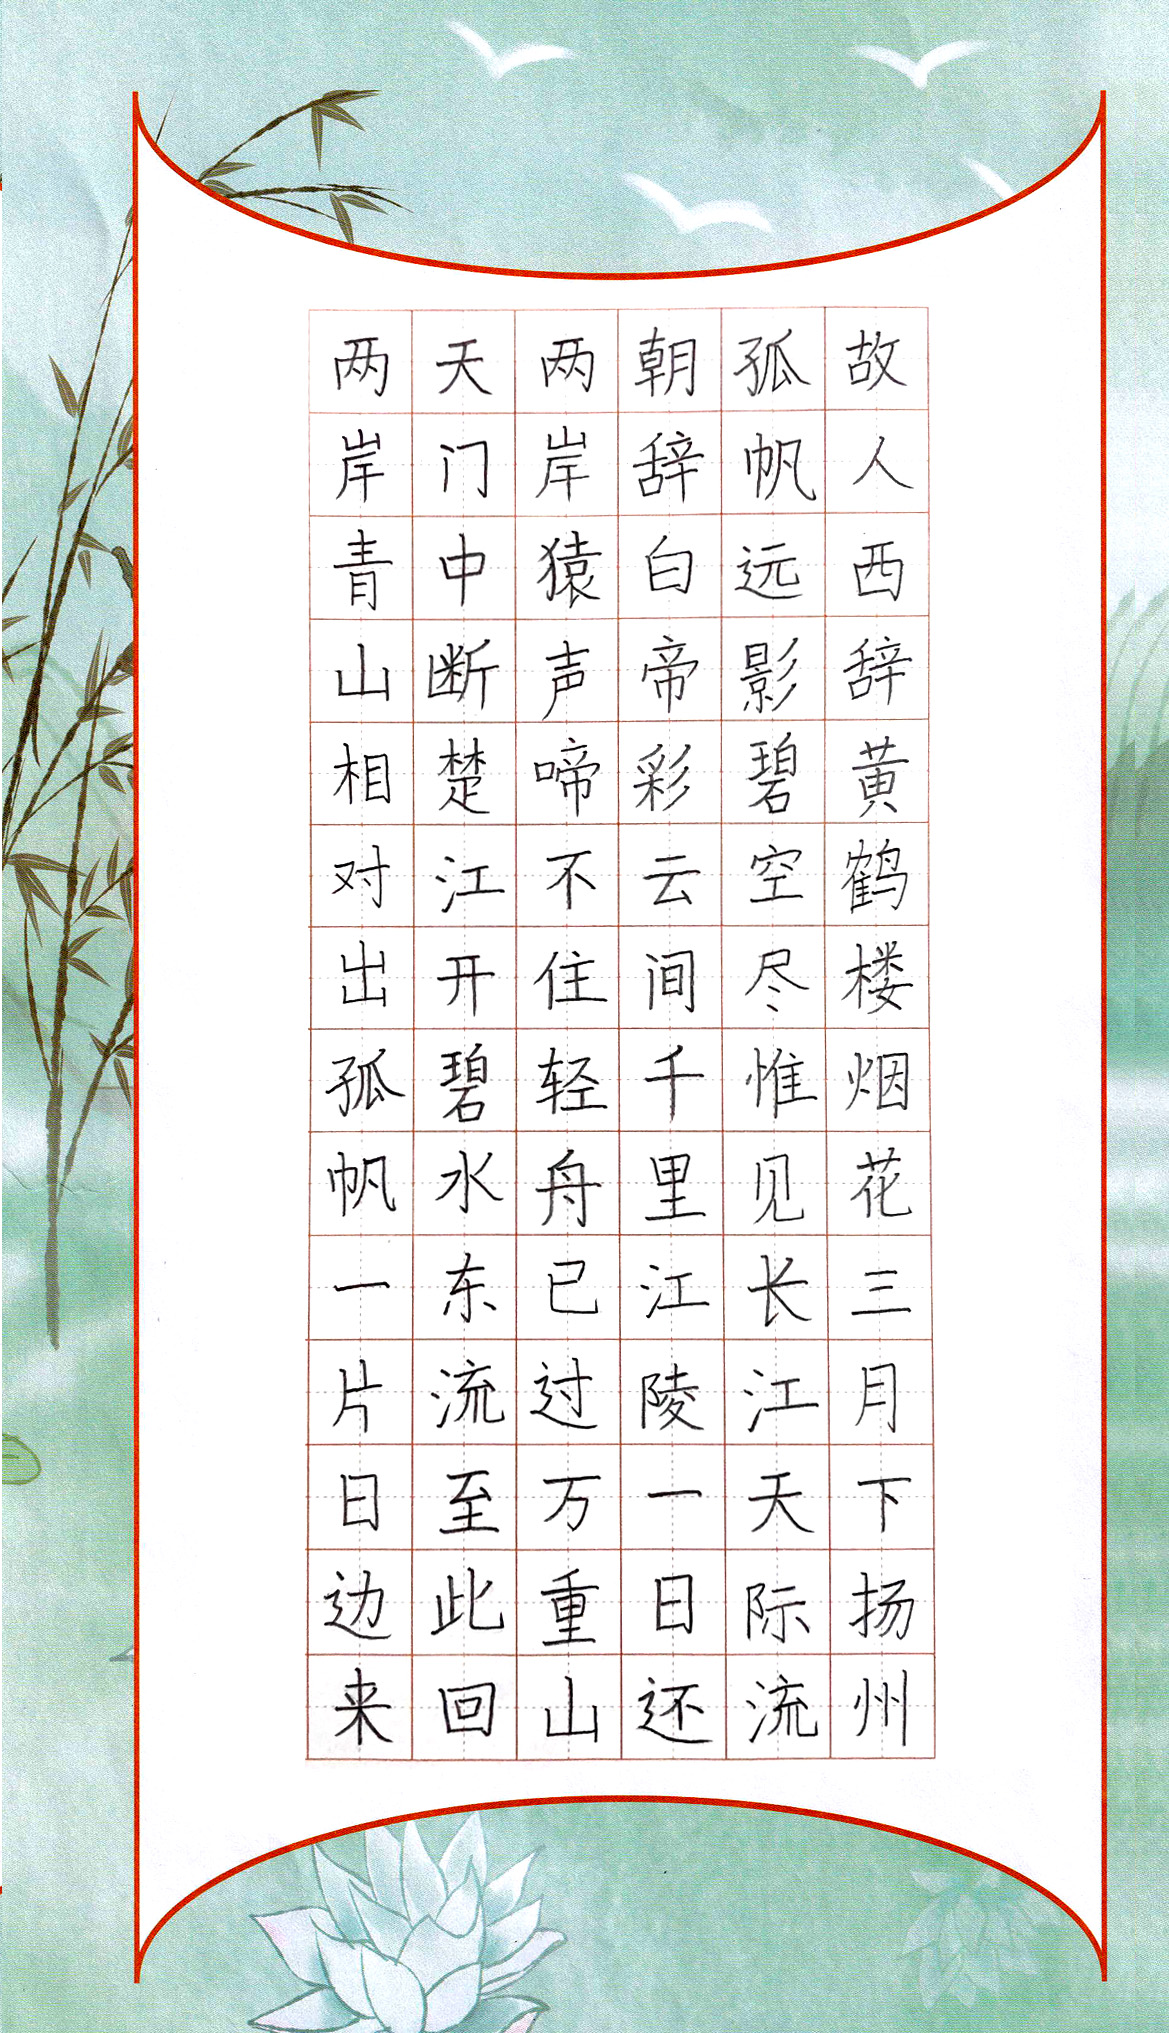 故人西辞黄鹤楼烟花三月下扬州
孤帆远影碧空尽惟见长江天际流
朝辞白帝彩云间千里江陵一日还
两岸猿声啼不住轻舟已过万重山
天门中断楚江开碧水东流至此回
两岸青山相对出孤帆一片日边来